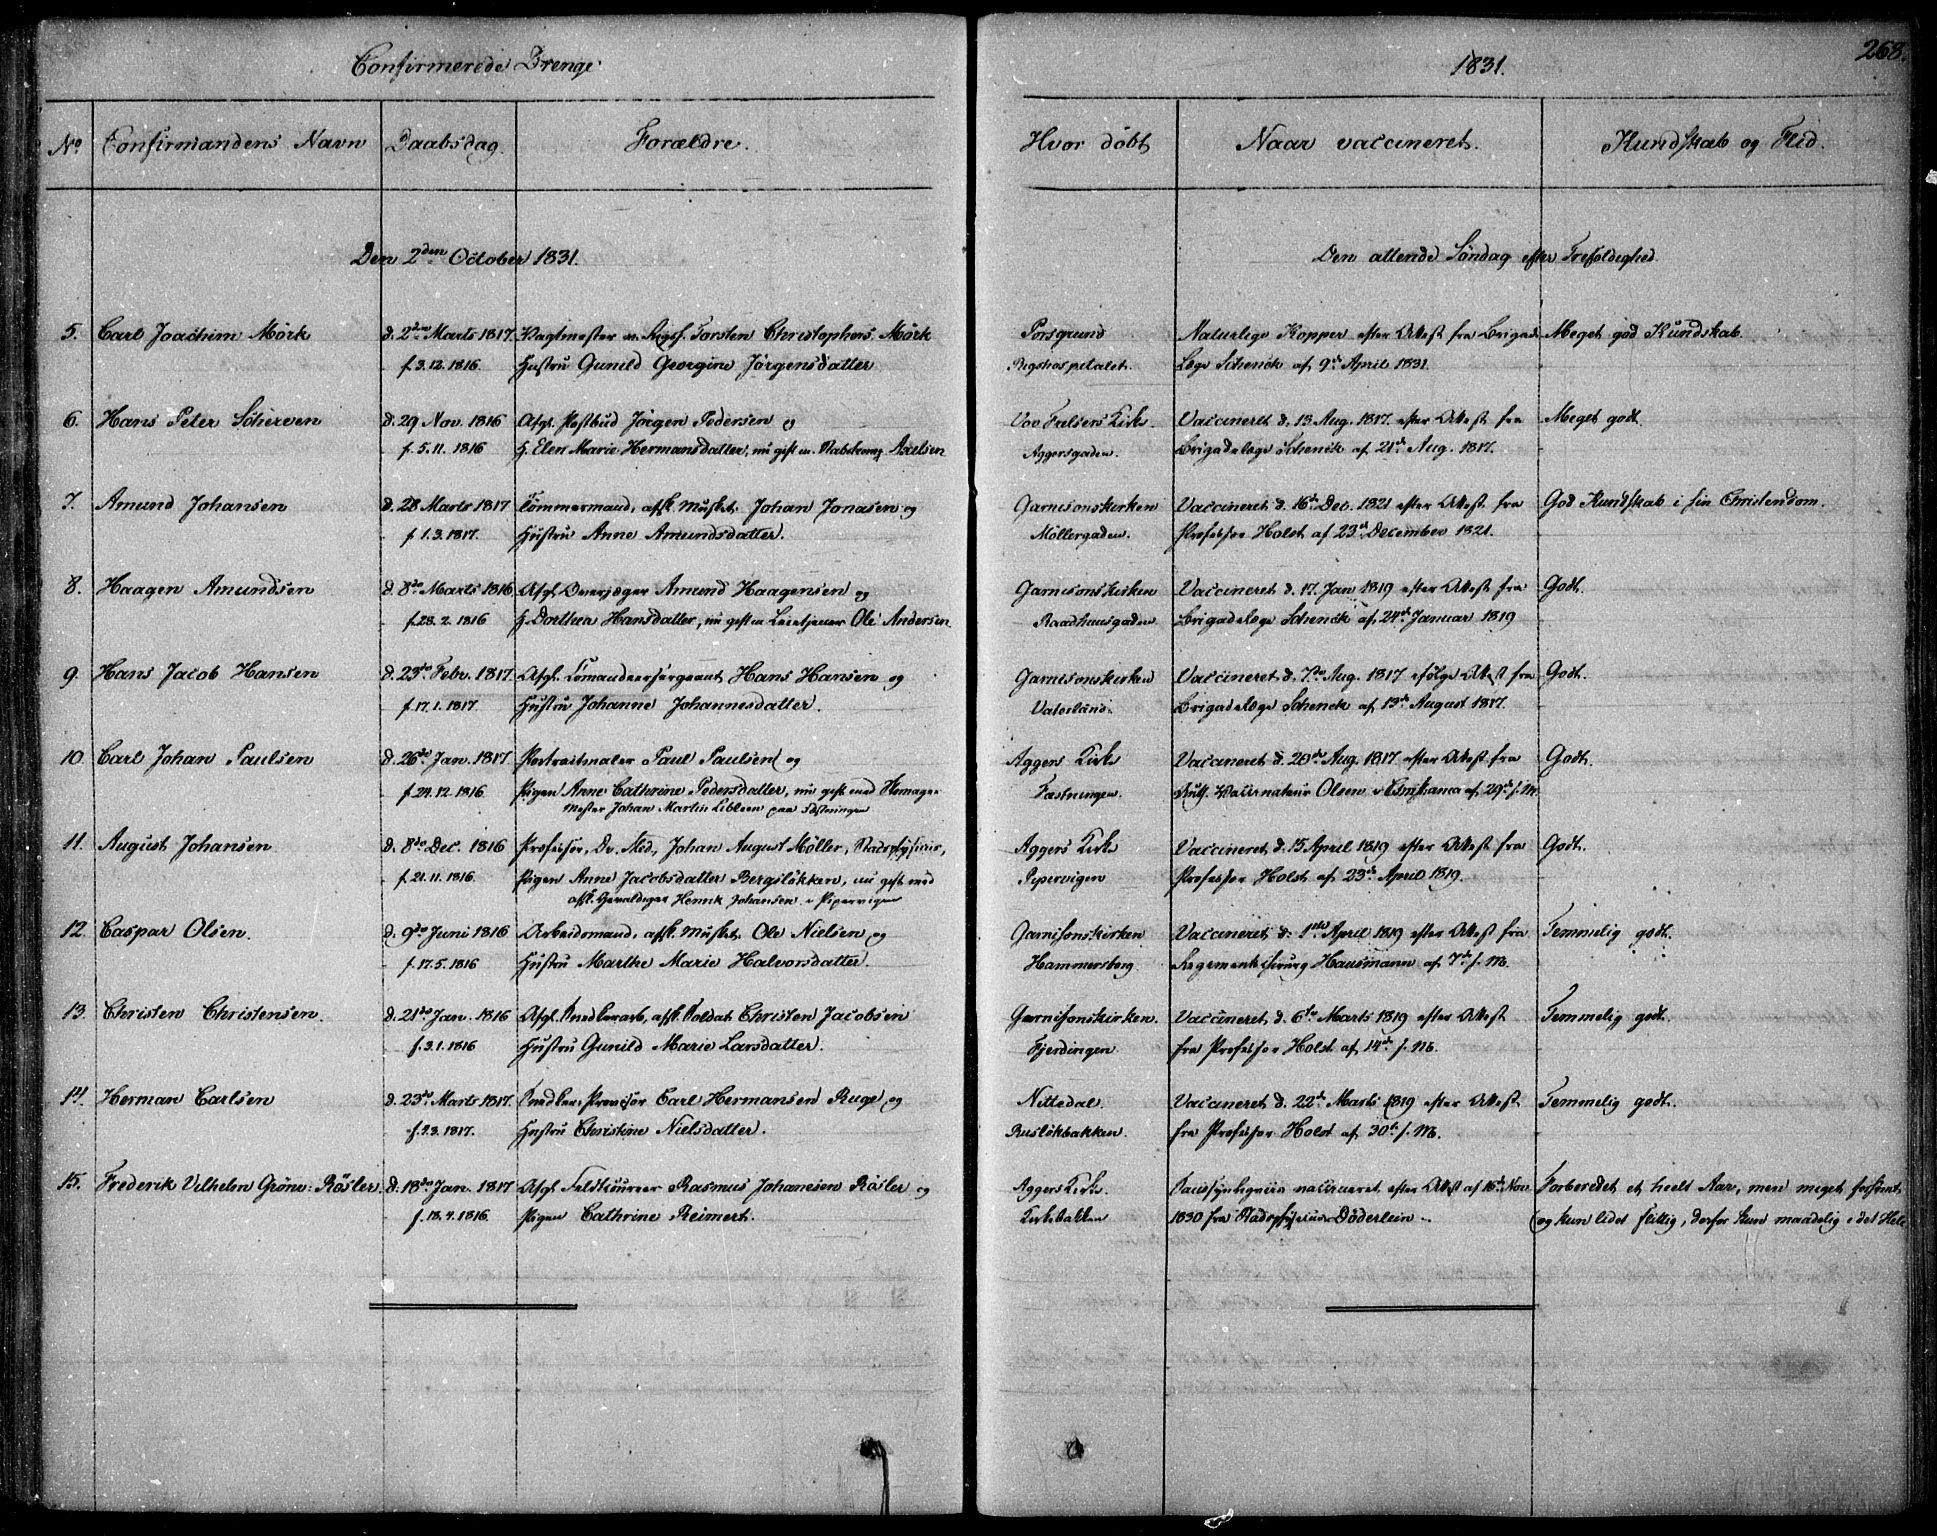 Confirmerede Drenge
1831.
268.
No Confirmandens Navn Daabsdag. Forældre. Hvor døbt Naar vaccineret. Kundskab og Flid.
Den 2den October 1831. Den attende Söndag efter Trefoldighed.
5. Carl Joachim Mörk d. 2den Marts 1817. Vagtmester v. Torsten Christophers. Mörk Porsgrund Naturlige Kopper efter Attest fra Brigade Meget god Kundskab.
f. 3.12.1816 Hustru Gunild Georgine Jörgensdatter Rigshospitalet. Læge Schenck af 9de April 1831.
6. Hans Peter Schirven d. 29 Nov. 1816 Afg. Postbud Jörgen Pedersen og Vor Frelsers Kirke. Vaccineret d. 13 Aug. 1817. efter Attest fra Meget godt.
f. 5.11.1816 H. Elen Marie Hermansdatter, nu gift m. Axelsen Aggersgaden. Brigadelæge Schenck af 21de Aug. 1817.
7. Amund Johansen d. 28 Marts 1817 Tömmermand, afsk. Musket. Johan Jonasen og Garnisonskirken Vaccineret d. 16de Dec. 1821 efter Attest fra God Kundskab i sin Christendom.
f. 1.3.1817. Hustru Anne Amundsdatter. Möllergaden. Professor Holst af 23de December 1821.
8. Haagen Amundsen d. 8de Marts 1816 Afg. Amund Haagensen og Garnisonskirken Vaccineret d. 17. Jan 1819 efter Attest fra Godt.
f. 28.2.1816 H. Dorthea Hansdatter, nu gift m. Leietjener Ole Andersen. Raadhuusgaden Brigadelæge Schenck af 24de Januar 1819
9. Hans Jacob Hansen d. 23de Febr. 1817. Afg. Comandeersergeant Hans Hansen og Garnisonskirken Vaccineret d. 7de Aug. 1817 ifölge Attest fra Godt.
f. 17.1.1817 Hustru Johanne Johannesdatter. Vaterland. Brigadelæge Schenck af 13de August 1817.
10. Carl Johan Paulsen d. 26de Jan. 1817. Portraitmaler Paul Paulsen og Aggers Kirke Vaccineret d. 20de Aug. 1817 efter Attest fra Godt.
f. 24.12.1816. Pigen Anne Cathrine Pedersdatter, nu gift med Fæstningen. Auth. Vaccinateur Olsen i Christiania af 29de s. M.
mester Johan Martin paa Fæstningen
11. August Johansen d. 8de Dec. 1816 Professor, Dr. Med, Johan August Möller, Stadsphysicus, Aggers Kirke Vaccineret d. 15 April 1819 efter Attest fra Godt.
f. 21.11.1816. Pigen Anne Jacobsdatter Bergslökken, nu gift med Pipervigen Professor Holst af 23de April 1819.
afsk. Gevaldiger Henrik Johansen i Pipervigen
12. Caspar Olsen. d. 9de Juni 1816 Arbeidsmand, afsk. Musket. Ole Nielsen og Garnisonskirken Vaccineret d. 1ste April 1819 efter Attest fra Temmelig godt.
f. 17.5.1816 Hustru Marthe Marie Halvorsdatter. Hammersborg Regimentschirurg Hausmann af 7de s. M.
13. Christen Christensen. d. 21de Jan. 1816 Afg. Snedkerarb, afsk. Soldat Christen Jacobsen Garnisonskirken. Vaccineret d. 6te Marts 1819 efter Attest Temmelig godt.
f. 3.1.1816 Hustru Gunild Marie Larsdatter. Fjerdingen fra Professor Holst af 14de s. M.
14. Herman Carlsen d. 23de Marts 1817. Snedker Carl Hermansen Ruge og Nittedal. Vaccineret d. 22de Marts 1819 efter Attest Temmelig godt.
f. 9.3.1817. Hustru Christine Nielsdatter. Ruslökbakken. fra Professor Holst af 30te s. M.
15. Frederik Vilhelm Gröne: Rösler. d. 18de Jan. 1817 Afg. Feldtcoureer Rasmus Johanesen Rösler og Aggers Kirke. vaccineret efter Attest af 16de Nov. Forberedet et heelt Aar, men meget forsömt
f. 18.4.1816. Pigen Cathrine Reimert. Kirkebakken 1830 fra Stadsphysicus Döderlein. og kun lidet flittig, derfor kun maadelig i det Hele